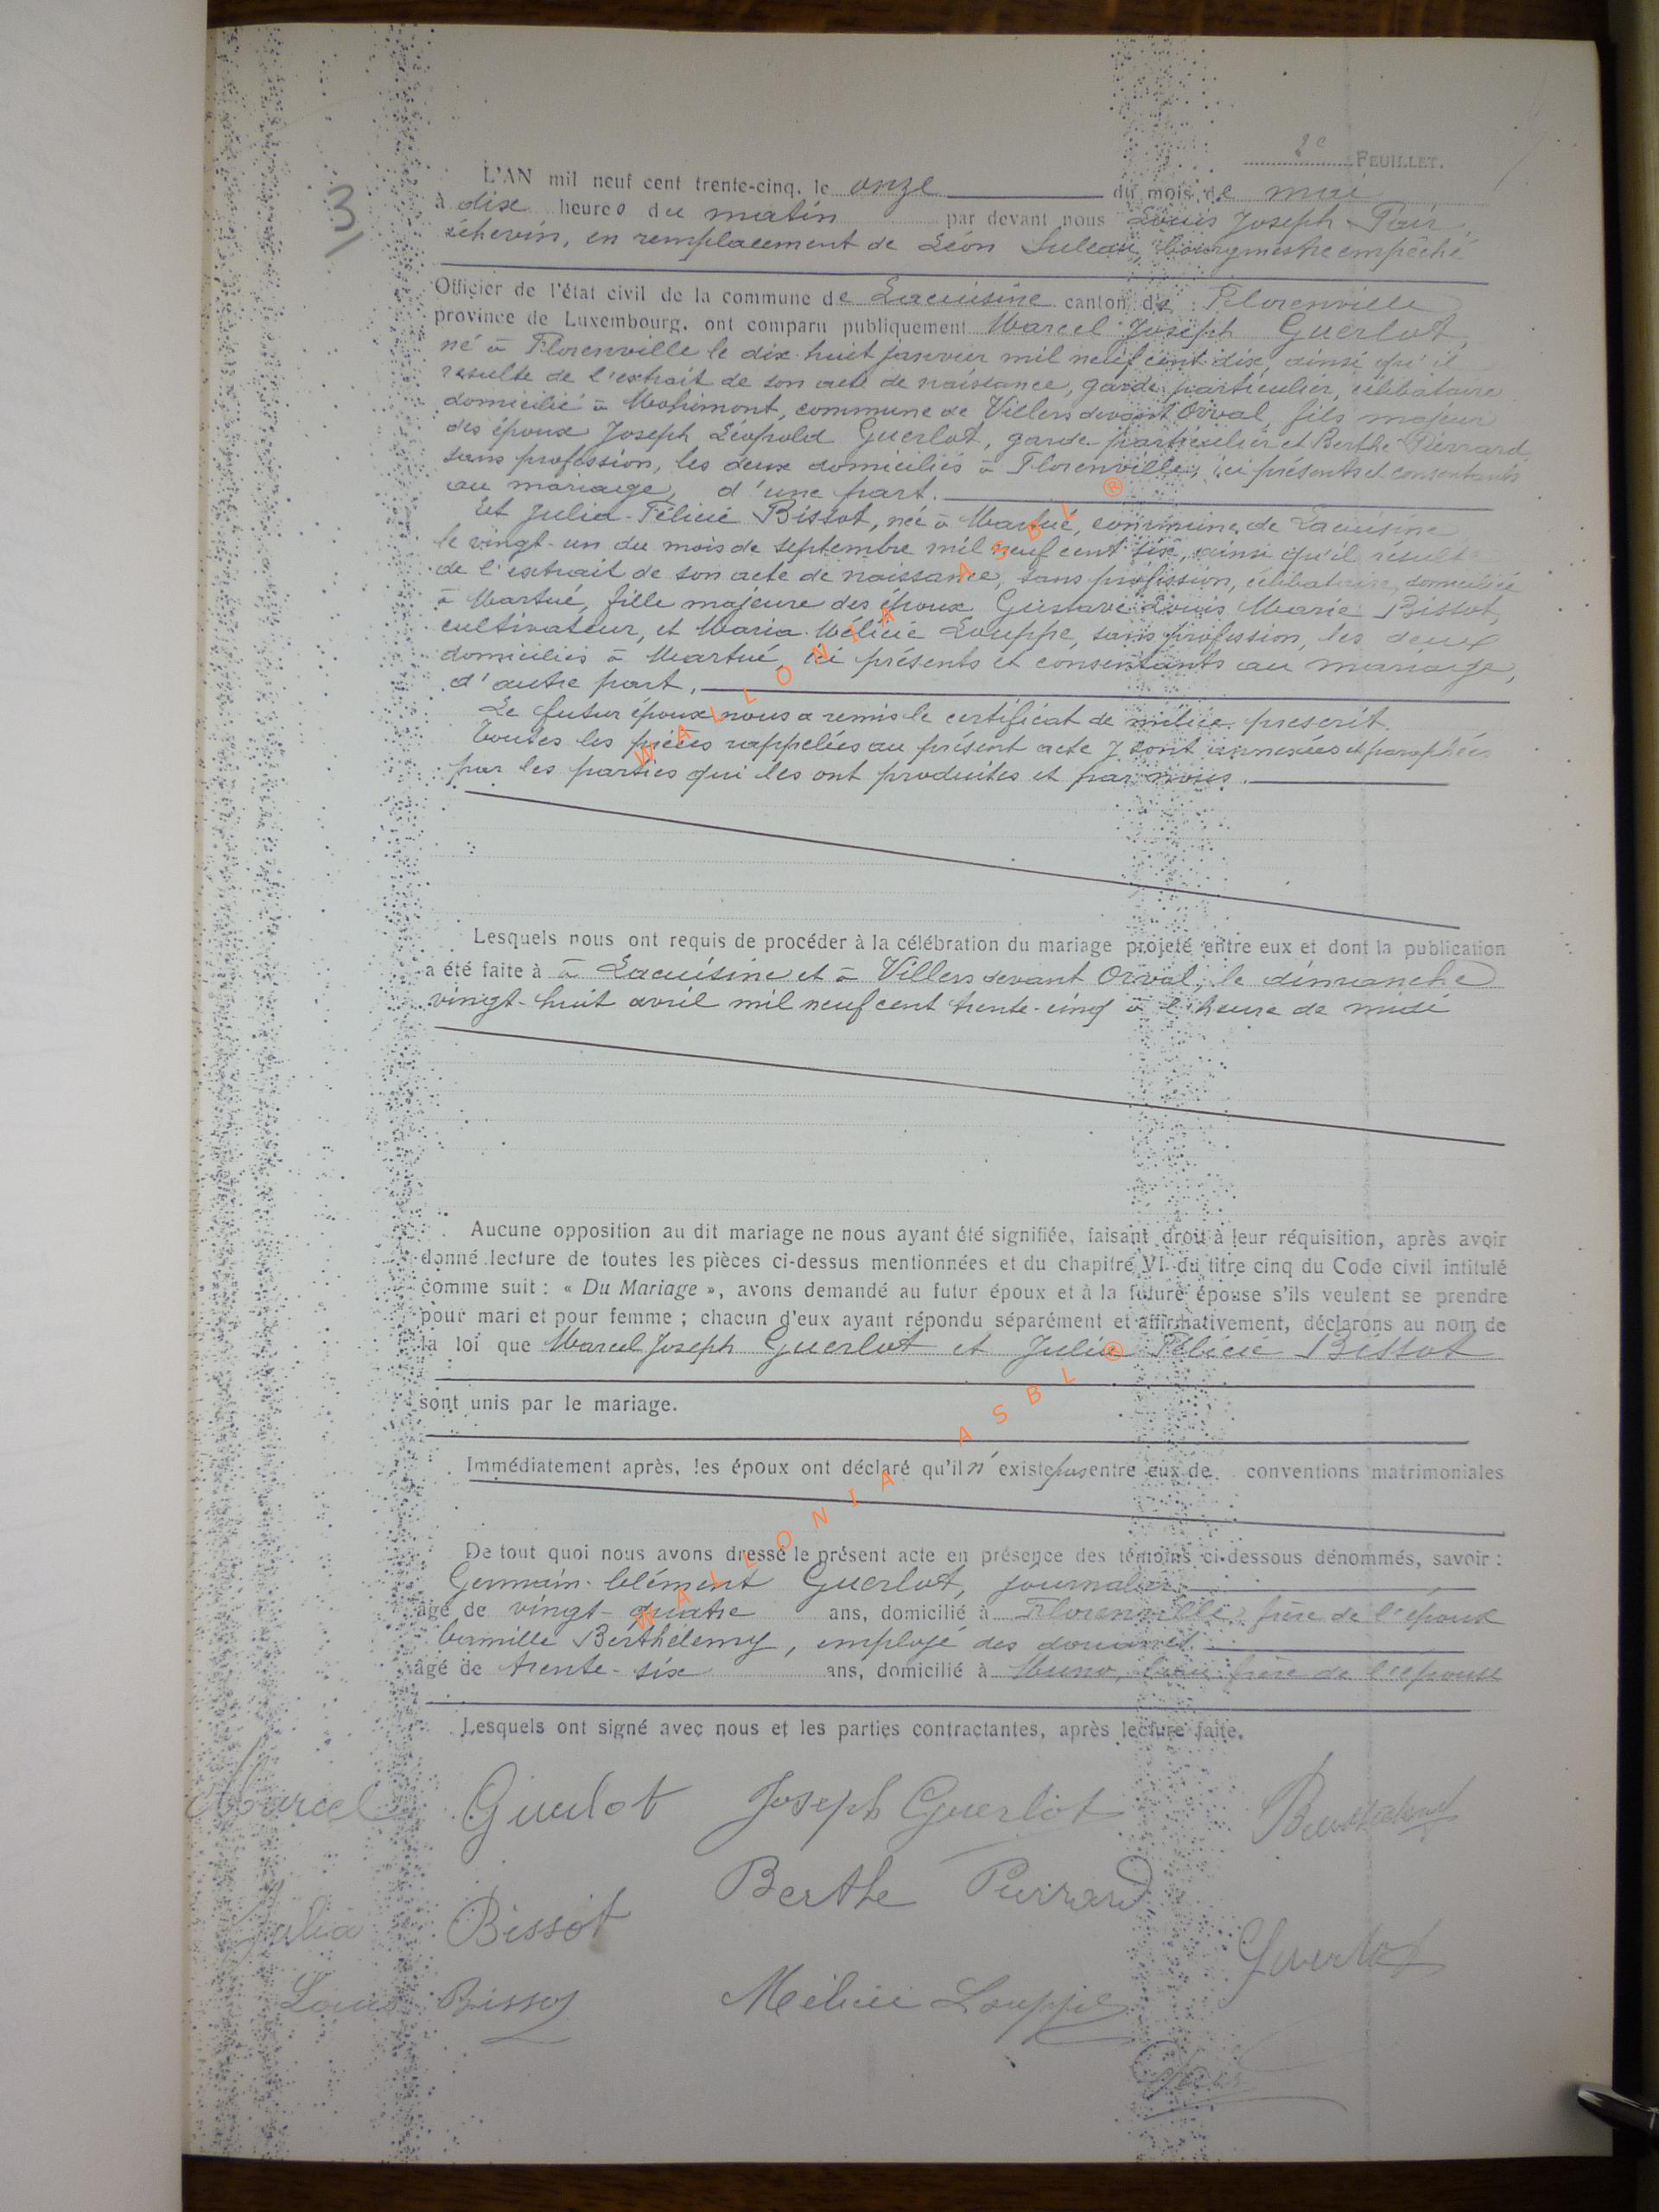 2e FEUILLET.
3
L'AN mil neuf cent trente-cinq, le onze du mois de mai
à dix heures du matin par devant nous Louis Joseph
échevin, en remplacement de Léon Suleau, bourgmestre empêché
Officier de l'état civil de la commune de Lacuisine canton de Florenville
province de Luxembourg, ont comparu publiquement Marcel Joseph Guerlot,
né à Florenville le dix-huit janvier mil neuf cent dix, ainsi qu'il
résulte de l'extrait de son acte de naissance, garde particulier, célibataire
domicilié à commune de Villers devant Orval, fils majeur
des époux Joseph Léopold Guerlot, garde-particulier et Berthe Pierrard
sans profession, les deux domiciliés à Florenville, ici présents et consentants
au mariage, d'une part.
Et Julia-Félicie Bissot, née à Martué, commune de Lacuisine
le vingt-un du mois de septembre mil neuf cent six, ainsi qu'il résulte
de l'extrait de son acte de naissance, sans profession, célibataire, domiciliée
à Martué, fille majeure des époux Gustave Louis Marie Bissot,
cultivateur, et Maria Mélicie Louppe, sans profession, les deux
domiciliés à Martué, ici présents et consentants au mariage,
d'autre part.
Le futur époux nous a remis le certificat de milice prescrit.
Toutes les pièces rappelées au présent acte y sont annexées et paraphées
par les parties qui les ont produites et par nous.
Lesquels nous ont requis de procéder à la célébration du mariage projeté entre eux et dont la publication
a été faite à à Lacuisine et à Villers devant Orval, le dimanche
vingt-huit avril mil neuf cent trente-cinq à l'heure de midi
Aucune opposition au dit mariage ne nous ayant été signifiée, faisant droit à leur réquisition, après avoir
donné lecture de toutes les pièces ci-dessus mentionnées et du chapitre VI du titre cinq du Code civil intitulé
comme suit : « Du Mariage », avons demandé au futur époux et à la future épouse s'ils veulent se prendre
pour mari et pour femme ; chacun d'eux ayant répondu séparément et affirmativement, déclarons au nom de
la loi que Marcel Joseph Guerlot et Julia Félicie Bissot
sont unis par le mariage.
Immédiatement après, les époux ont déclaré qu'il n'existe pas entre eux de conventions matrimoniales
De tout quoi nous avons dressé le présent acte en présence des témoins ci-dessous dénommés, savoir :
Germain-Clément Guerlot, journalier
âgé de vingt-quatre ans, domicilié à Florenville, frère de l'époux
Camille Berthélemy, employé des douanes
âgé de trente-six ans, domicilié à Muno, beau-frère de l'épouse
Lesquels ont signé avec nous et les parties contractantes, après lecture faite.
Marcel Guerlot Joseph Guerlot Berthélemy
Berthe Pierrard
Julia Bissot
Guerlot
Louis Bissot Mélicie Louppe
WALLONIA ASBL ®
WALLONIA ASBL ®